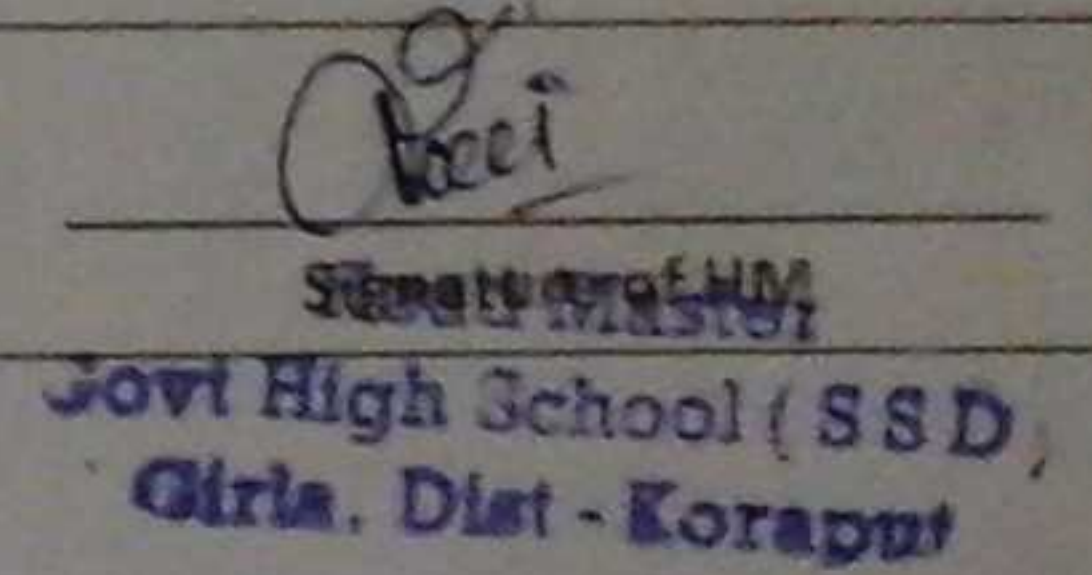 Signature of HM
Head Master
Govt High School ( S S D )
Girls. Dist - Koraput